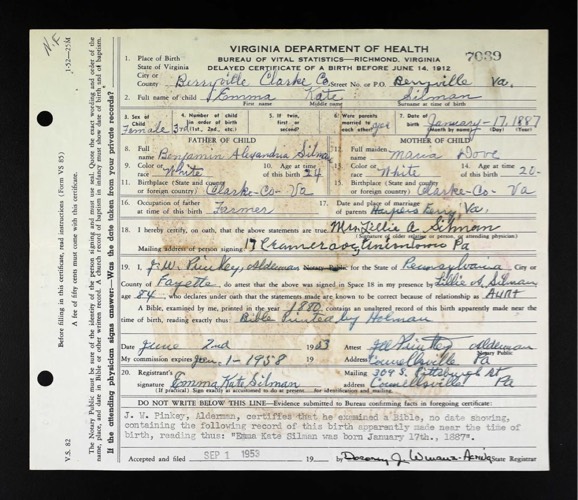 N.F.
1-52—25M
VIRGINIA DEPARTMENT OF HEALTH
BUREAU OF VITAL STATISTICS—RICHMOND, VIRGINIA
7039
DELAYED CERTIFICATE OF A BIRTH BEFORE JUNE 14, 1912
1. Place of Birth
State of Virginia
City or County Berryville Clarke Co. Street No. or P.O. Berryville Va.
2. Full name of child Emma Kate Silman
First name Middle name Surname at time of birth
3. Sex of Child Female
4. Number of child (in order of birth) 3rd (1st., 2nd., etc.)
5. If twin, first or second?
6. Were parents married to each other? yes
7. Date of Birth January-17, 1887
Month by name) (Day) (Year)
FATHER OF CHILD
MOTHER OF CHILD
8. Full name Benjamin Alexandria Silman
12. Full maiden name Maria Dove
9. Color or race White
10. Age at time of this birth 24
13. Color or race White
14. Age at time of this birth 20-
11. Birthplace (State and county or foreign country) Clarke-Co- Va
15. Birthplace (State and county or foreign country) Clarke-Co- Va
16. Occupation of father at time of this birth Farmer
17. Date and place of marriage of parents Harpers Ferry, Va.
18. I hereby certify, on oath, that the above statements are true. Mrs. Lillie A. Silman
(Signature of older relative or person, or attending physician)
Mailing address of person signing 17 Uniontown Pa
19. I, J. W. Pinkey, Alderman Notary Public for the State of Pennsylvania City or
County of Fayette, do attest that the above signed in Space 18 in my presence by Lillie A. Silman
age 84, who declares under oath that the statements made are known to be correct because of relationship as Aunt
A Bible, examined by me, printed in the year 1880 contains an unaltered record of this birth apparently made near the
time of birth, reading exactly thus: Bible Printed by Holman
Date June 2nd 1953 Attest J.W. Pinkey Alderman
Notary Public
My commission expires Jan. 1-1958 Address Connellsville Pa
20. Registrant's signature Emma Kate Silman Mailing Address 304 S. Pittsburgh St Connellsville Pa
(If practical) Sign exactly as accustomed to do at present—for identification and mailing.
DO NOT WRITE BELOW THIS LINE—Evidence submitted to Bureau confirming facts in foregoing certificate:
J. W. Pinkey, Alderman, certifies that he examined a Bible, no date showing,
containing the following record of this birth apparently made near the time of
birth, reading thus: "Emma Kate Silman was born January 17th., 1887".
Accepted and filed SEP 1 1953 19 by Dorothy J. State Registrar
V.S. 82
Before filling in this certificate, read instructions (Form VS 85)
A fee of fifty cents must come with this certificate.
The Notary Public must be sure of the identity of the person signing and must use seal. Quote the exact wording and order of the
name, place, and date in Bible or other written record. A church record of baptism in infancy must show date of birth and of baptism.
If the attending physician signs answer: Was the date taken from your private records?